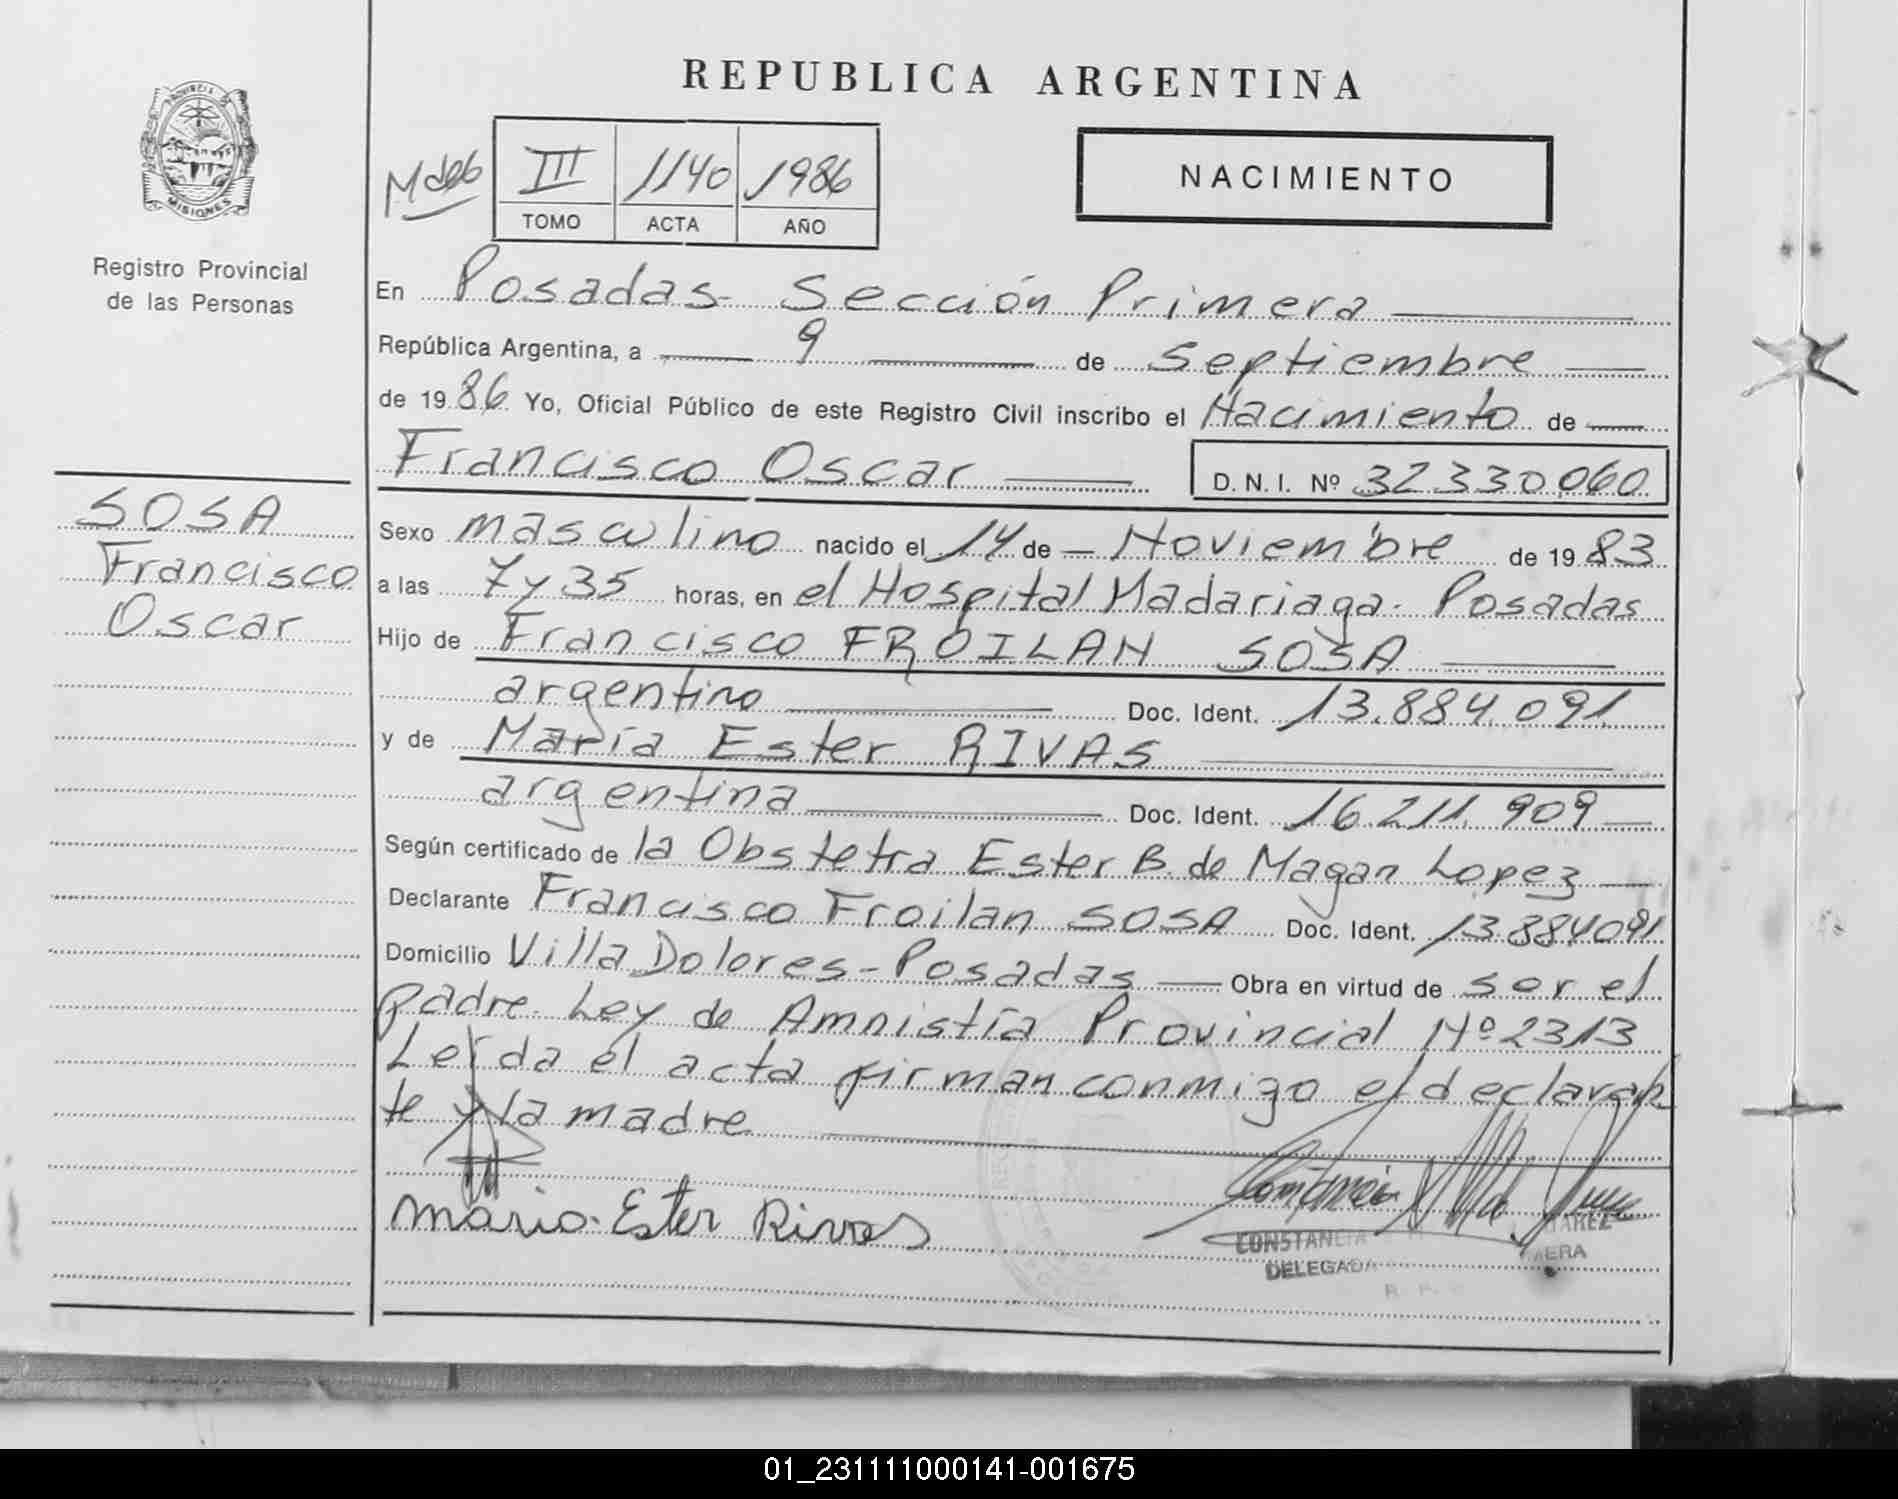 REPUBLICA ARGENTINA
PROVINCIA DE
MISIONES
Registro Provincial
de las Personas
III 1140 1986
TOMO ACTA AÑO
NACIMIENTO
En Posadas - Sección Primera
República Argentina, a 9 de Septiembre
de 1986 Yo, Oficial Público de este Registro Civil inscribo el Nacimiento de
Francisco Oscar D. N. I. Nº 32330,060
SOSA
Francisco
Oscar
Sexo masculino nacido el 14 de Noviembre de 1983
a las 7 y 35 horas, en el Hospital Madariaga - Posadas
Hijo de Francisco FROILAN SOSA
argentino Doc. Ident. 13.884.091
y de María Ester RIVAS
argentina Doc. Ident. 16.211.909
Según certificado de la Obstetra Ester B. de Magan Lopez
Declarante Francisco Froilan SOSA Doc. Ident. 13.884091
Domicilio Villa Dolores - Posadas Obra en virtud de ser el
padre. Ley de Amnistía Provincial Nº 2313
Leída el acta firman conmigo el declaran
te y la madre
Maria Ester Rivas
CONSTANCIA
DELEGADA
01_231111000141-001675